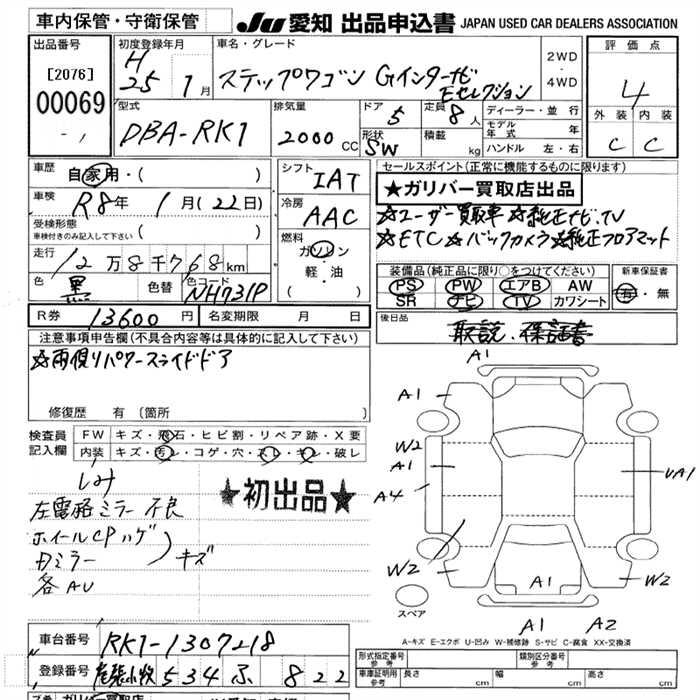 車内保管・守衛保管 JU 愛知 出品申込書 JAPAN USED CAR DEALERS ASSOCIATION
出品番号
[2076]
00069
初度登録年月
H
25 1月
車名・グレード
ステップワゴン Gインターナビ
Eセレクション
2WD
・
4WD
評価点
4
外装 内装
C C
型式
DBA-RK1
排気量
2000 CC
ドア
5
形状
SW
定員
8人
積載
kg
ディーラー・並行
モデル年式 年
ハンドル 左・右
車歴
自家用・( )
車検
R8年 1月(22日)
受検形態
車検付きのみ記入して下さい ( )
走行
12万8千768km
色
黒
色替
色コード
NH731P
シフト
IAT
冷房
AAC
燃料
ガソリン
・
軽・油
( )
セールスポイント(正常に機能するものに限ります)
★ガリバー買取店出品
☆ユーザー買取車 ☆純正ナビ、TV
☆ETC ☆バックカメラ ☆純正フロアマット
装備品(純正品に限り○をつけてください)
PS PW エアB AW
SR ナビ TV カワシート
新車保証書
有・無
R券 13600円
名変期限 月 日
後日品
取説、保証書
注意事項申告欄(不具合内容等は具体的に記入して下さい)
☆両側りパワースライドドア
修復歴 有 〔箇所 〕
検査員
記入欄
FW キズ・飛石・ヒビ割・リペア跡・X要
内装 キズ・汚レ・コゲ・穴・スレ・キレ・破レ
しみ
左電格ミラー不良
ホイールCPハゲ
ミラー
キズ
各AU
★初出品★
A1
A1
A1
W2
A1
A4
UA1
W2
A1
W2
スペア
A1 A2
A-キズ E-エクボ U-凹み W-補修跡 S-サビ C-腐食 XX-交換済
車台番号
RK1-1307218
登録番号
尾張小牧 534 ふ 822
形式指定番号
参考
類別区分番号
参考
車庫証明用
参考
長さ cm 幅 cm 高さ cm
ガリバー買取店